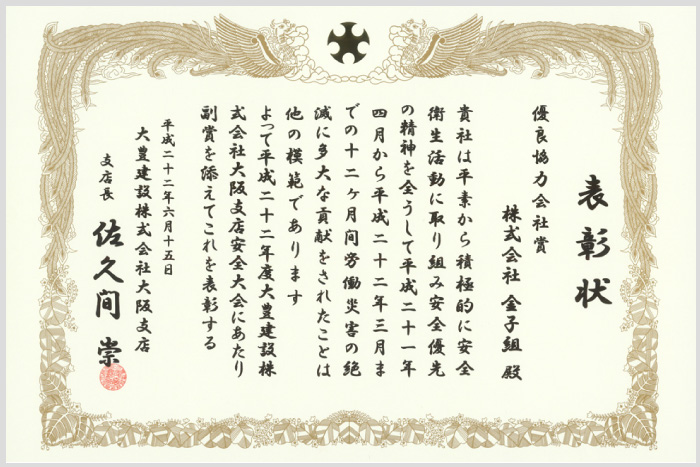 表彰状
優良協力会社賞
株式会社 金子組 殿
貴社は平素から積極的に安全
衛生活動に取り組み安全優先
の精神を全うして平成二十一年
四月から平成二十二年三月ま
での十二ヶ月間労働災害の絶
滅に多大な貢献をされたことは
他の模範であります
よって平成二十二年度大豊建設株
式会社大阪支店安全大会にあたり
副賞を添えてこれを表彰する
平成二十二年六月十五日
大豊建設株式会社大阪支店
支店長 佐久間 崇